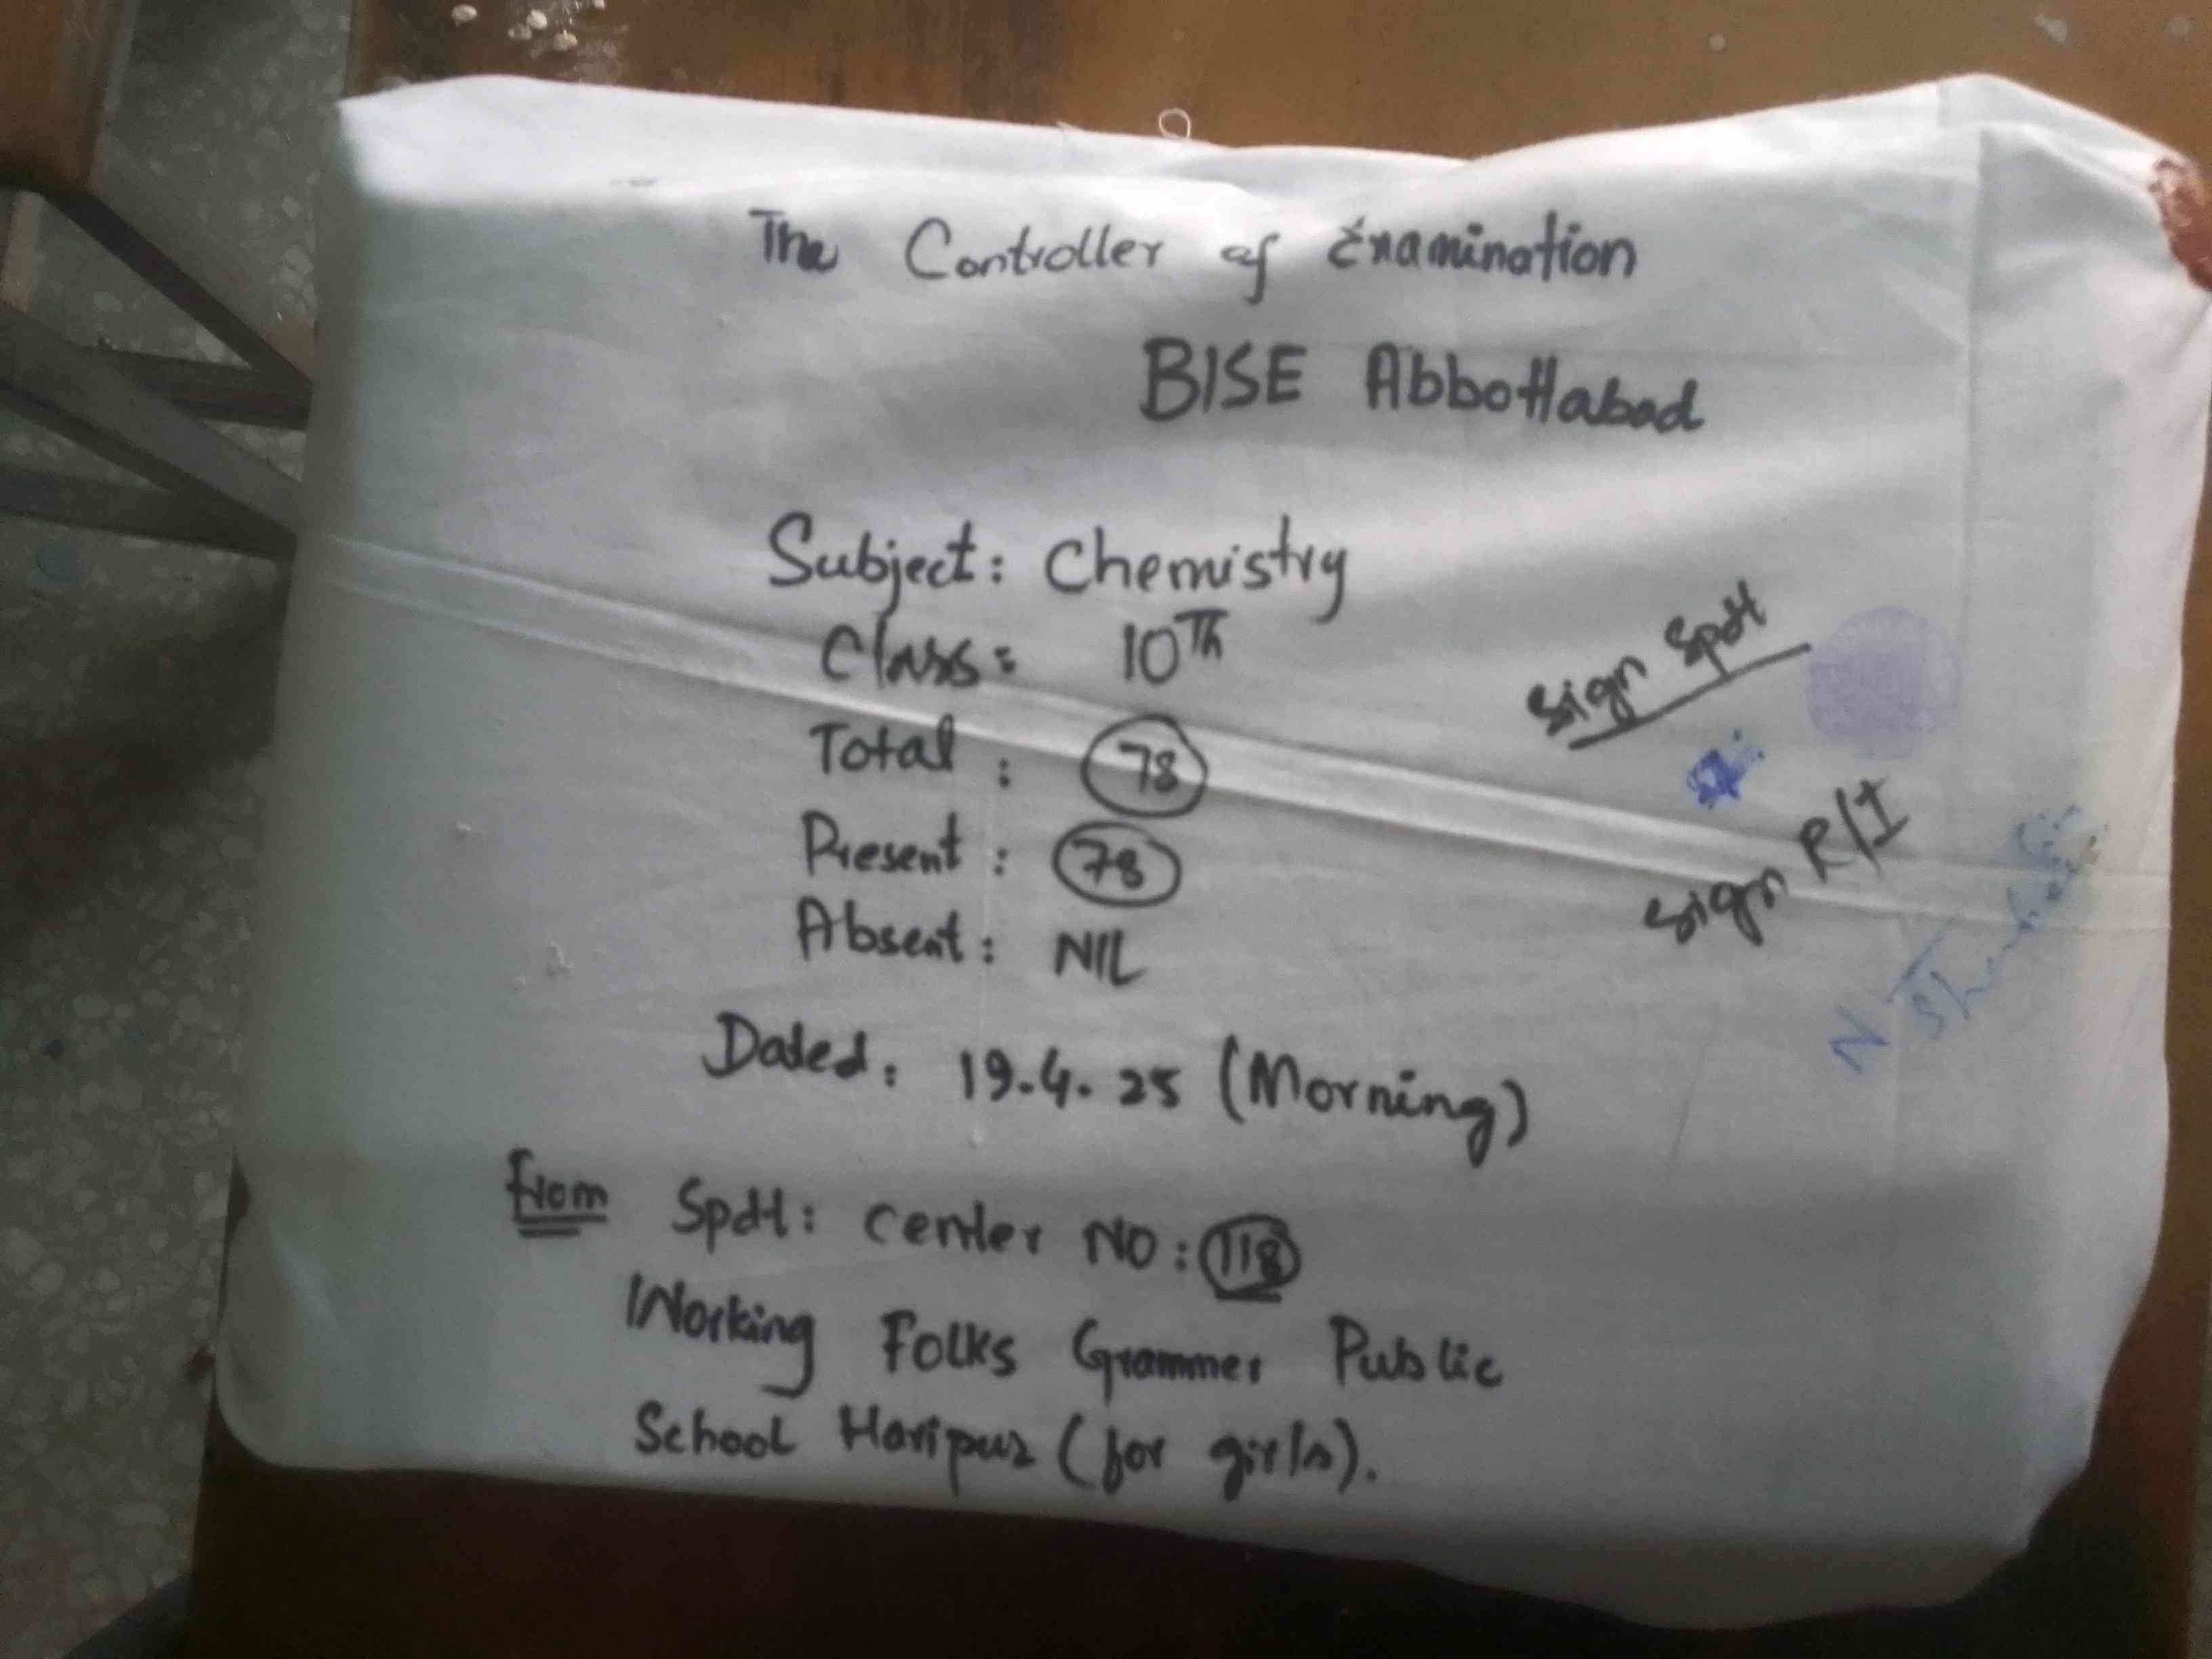 The Controller of Examination
BISE Abbottabad
Subject: Chemistry
Class: 10Th
Total : 78
Present : 78
Absent : NIL
Sign Spdt
Sign R/I
Dated: 19.4.25 (Morning)
From Spdt: Center NO: 118
Working Folks Grammer Public
School Haripur (for girls).